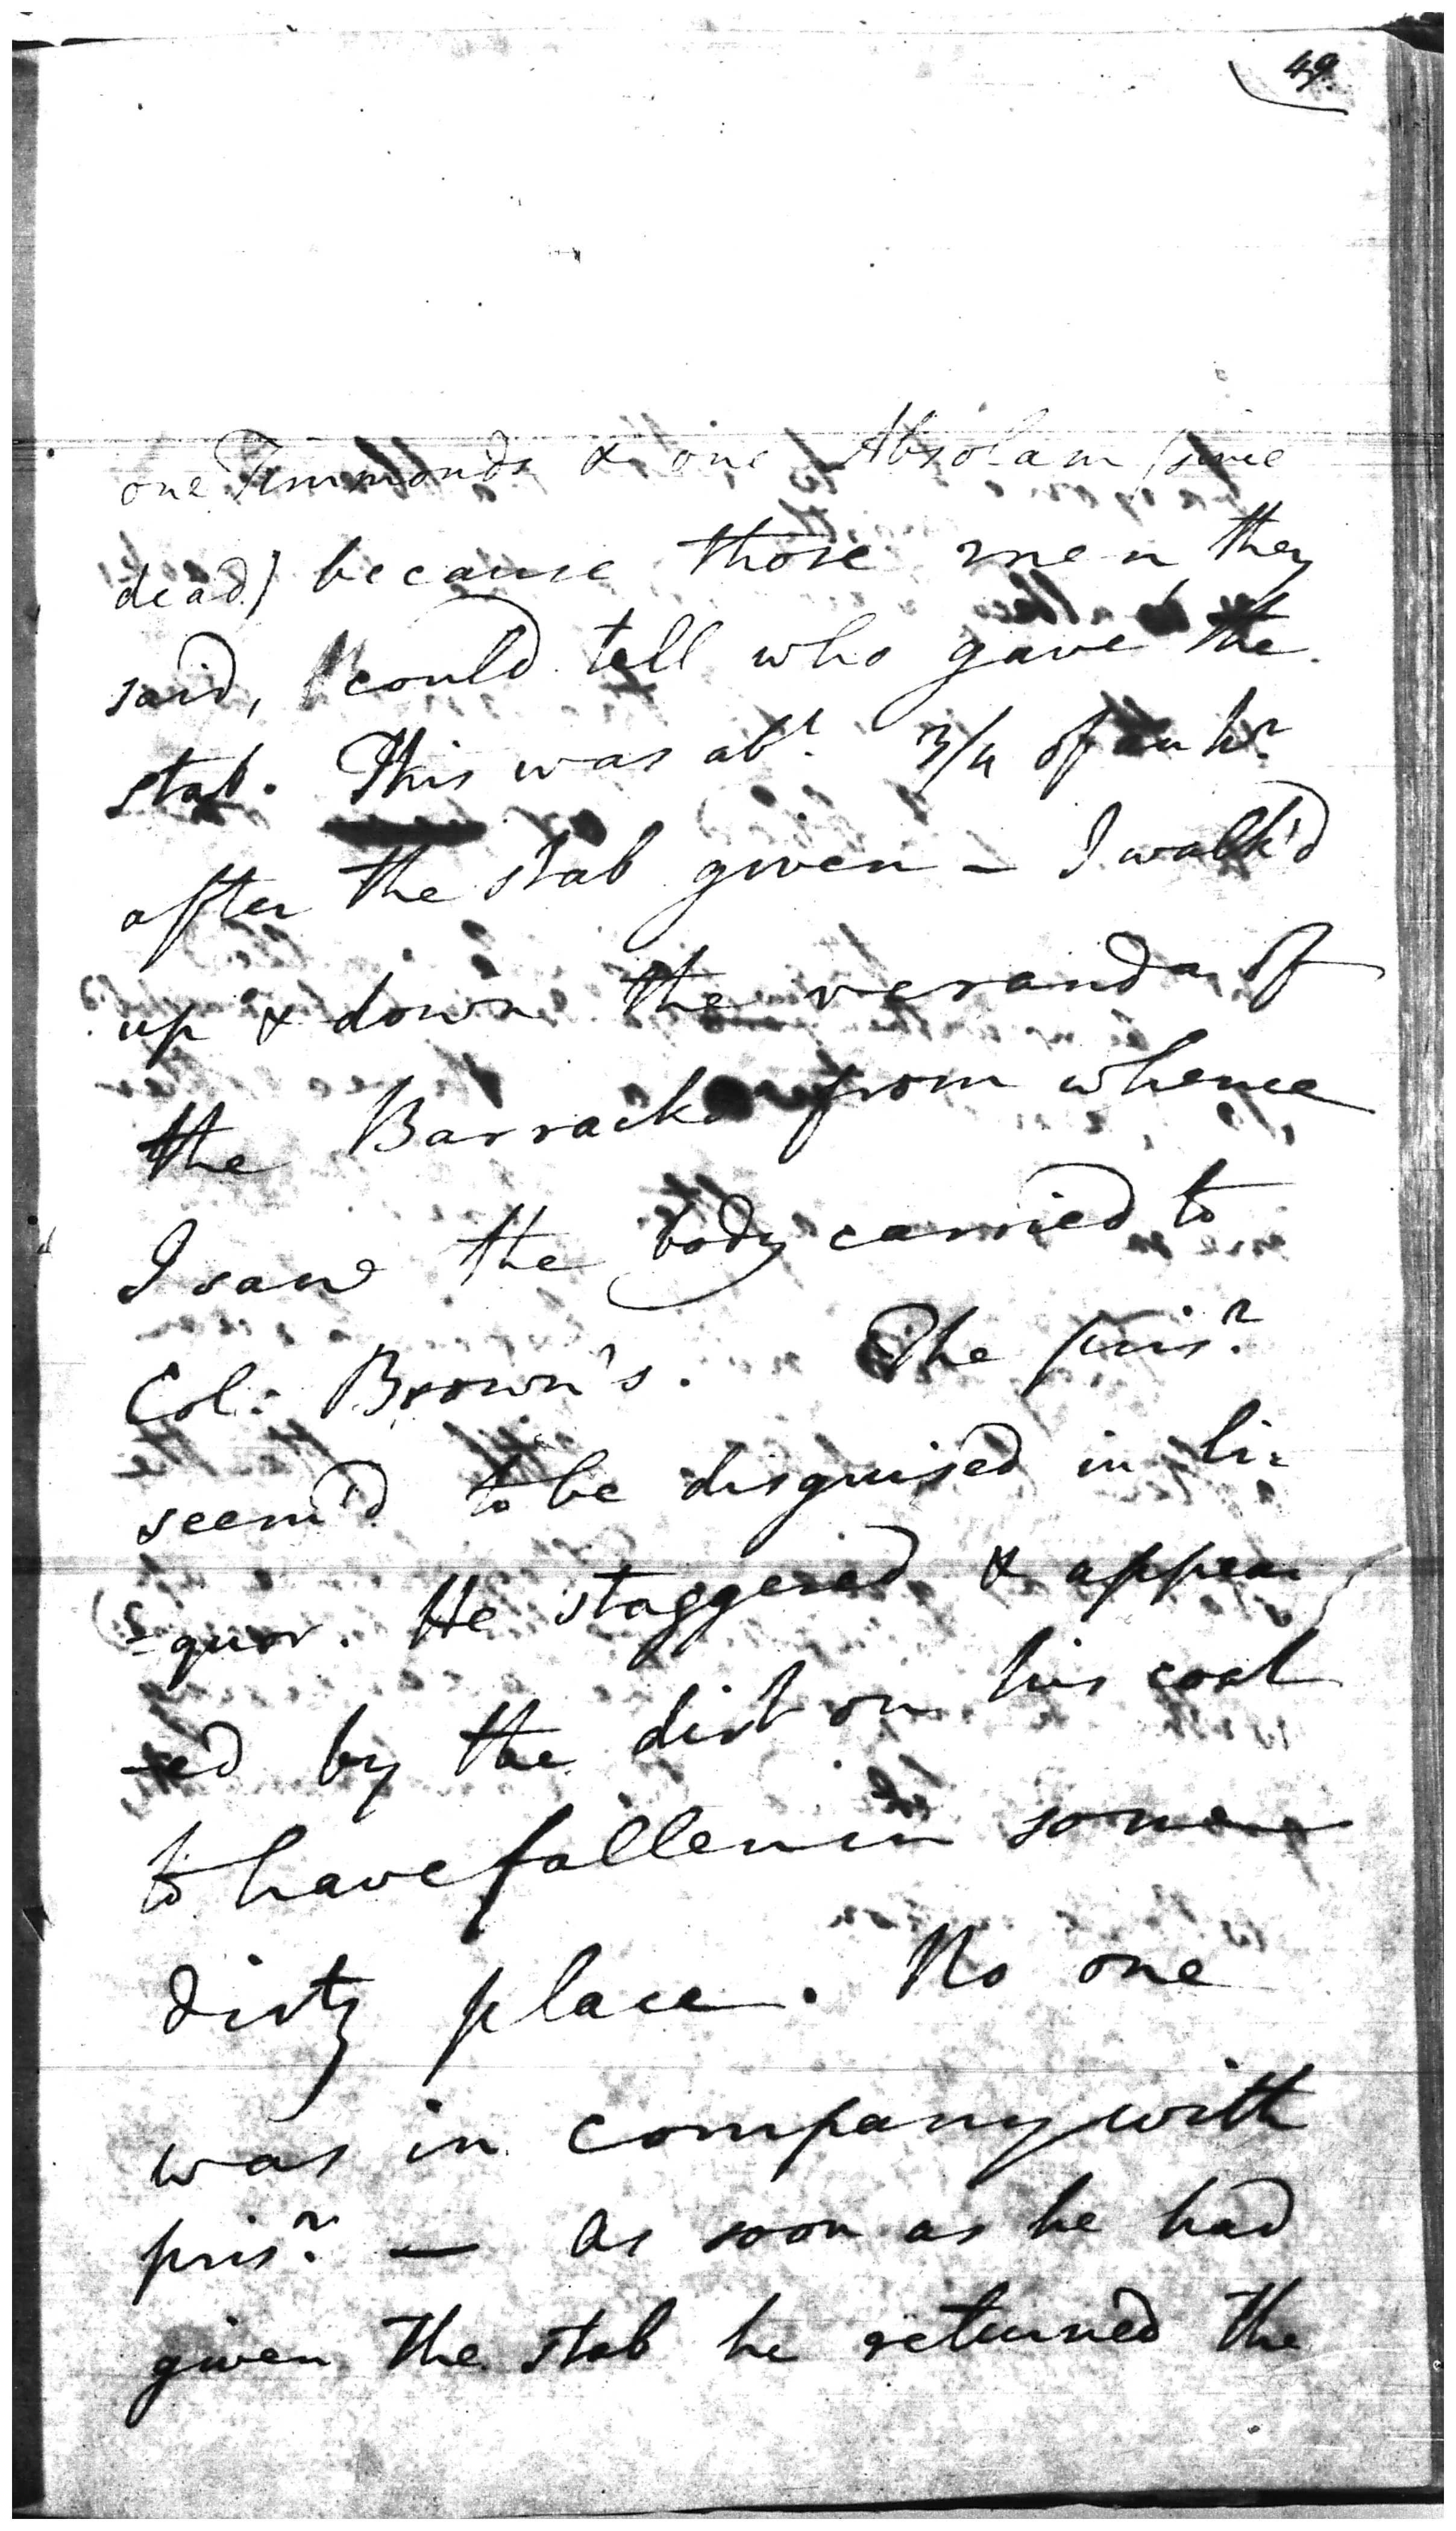 49.
one Timmonds & one Absolam (since
dead) because those men, they
said, could tell who gave the
stab. This was abt. 3/4 of an hr.
after the stab given - I walk'd
up & down the veranda of
the Barracks from whence
I saw the body carried to
Col: Brown's. The prisr.
seem'd to be disguised in li=
=quor. He staggered & appear
-ed by the dirt on his coat
to have fallen in some
dirty place. No one
was in company with
prisr. — As soon as he had
given the stab he returned the